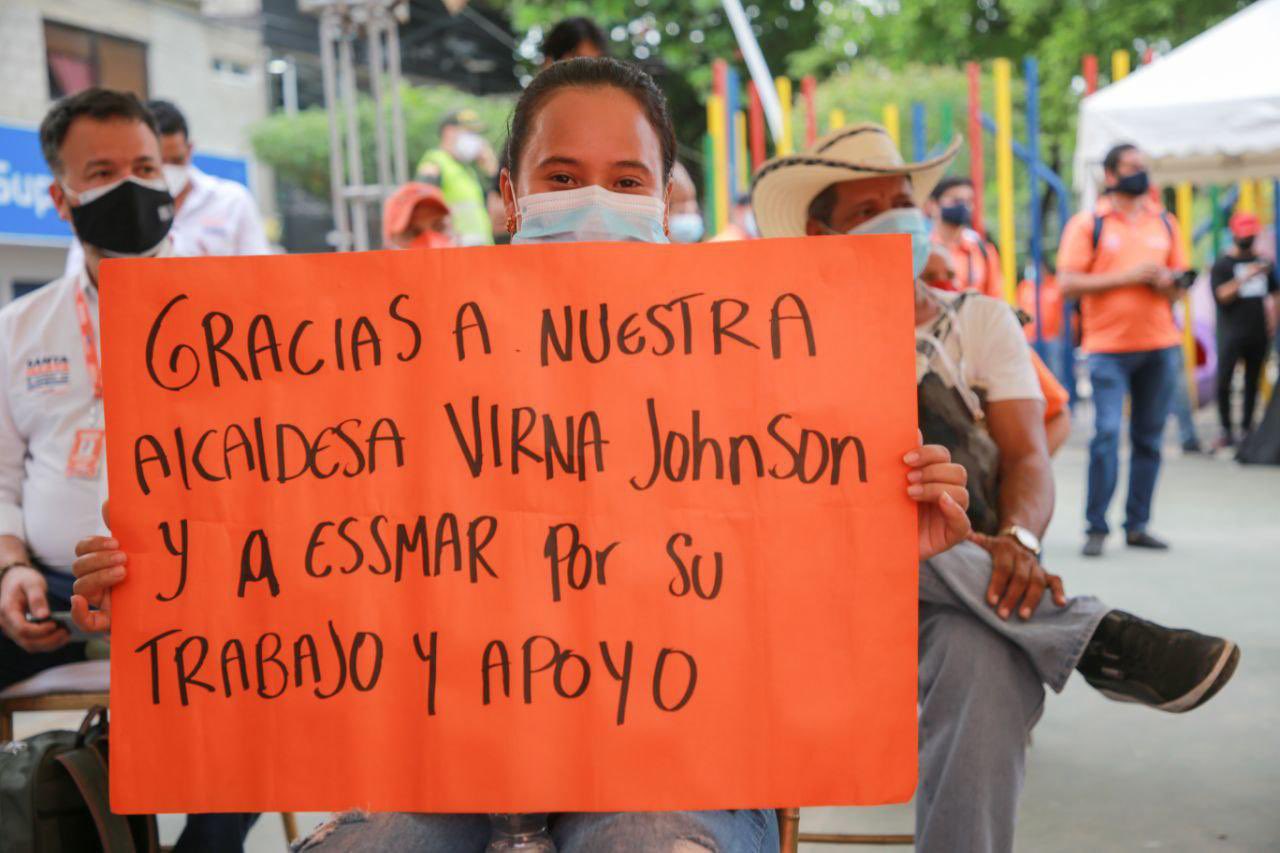 GRACIAS A NUESTRA
AlCAlDESA VIRNA JohnSon
y A ESSMAR Por su
TRABAJO y APOYO
Sup
SANTA